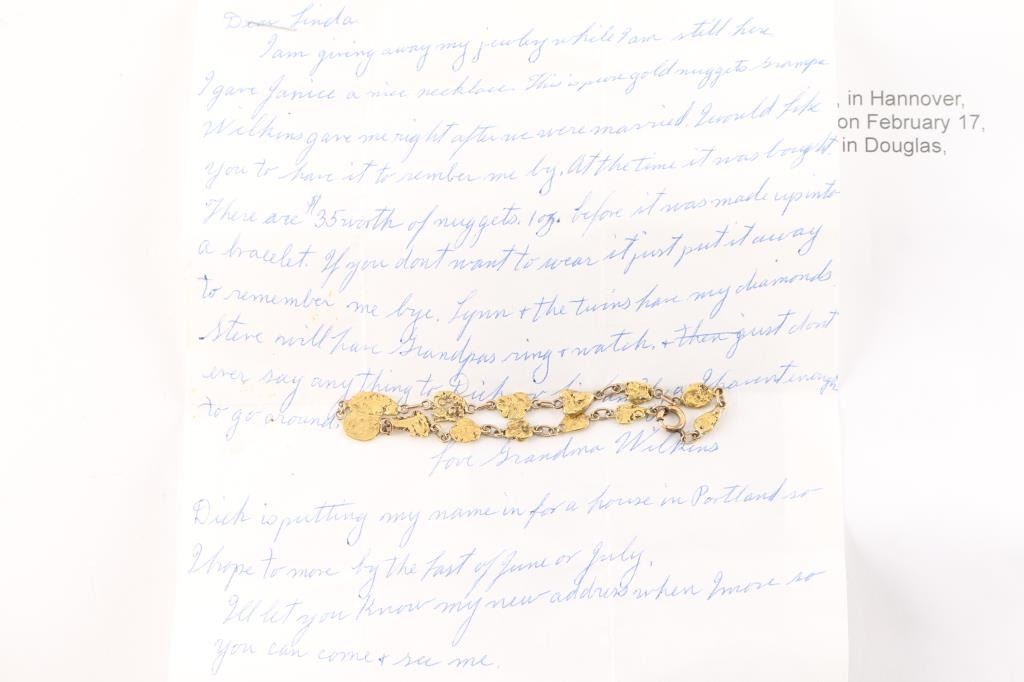 Dear Linda
I am giving away my jewlry while I am still here
I gave Janice a nice necklace. This is pure gold nuggets Grampa
Wilkins gave me right after we were married. I would like
you to have it to rember me by. At the time it was bought
There are $35 worth of nuggets. 1 oz. before it was made up into
a bracelet. If you dont want to wear it just put it away
to remember me bye. Lynn + the twins have my diamonds.
Steve will have Grandpas ring + watch. + then just dont
ever say anything to Dick I havent enough
to go around.
Love Grandma Wilkins
Dick is putting my name in for a house in Portland so
I hope to move by the last of June or July.
I'll let you know my new address when I move so
you can come + see me.
, in Hannover,
on February 17,
in Douglas,